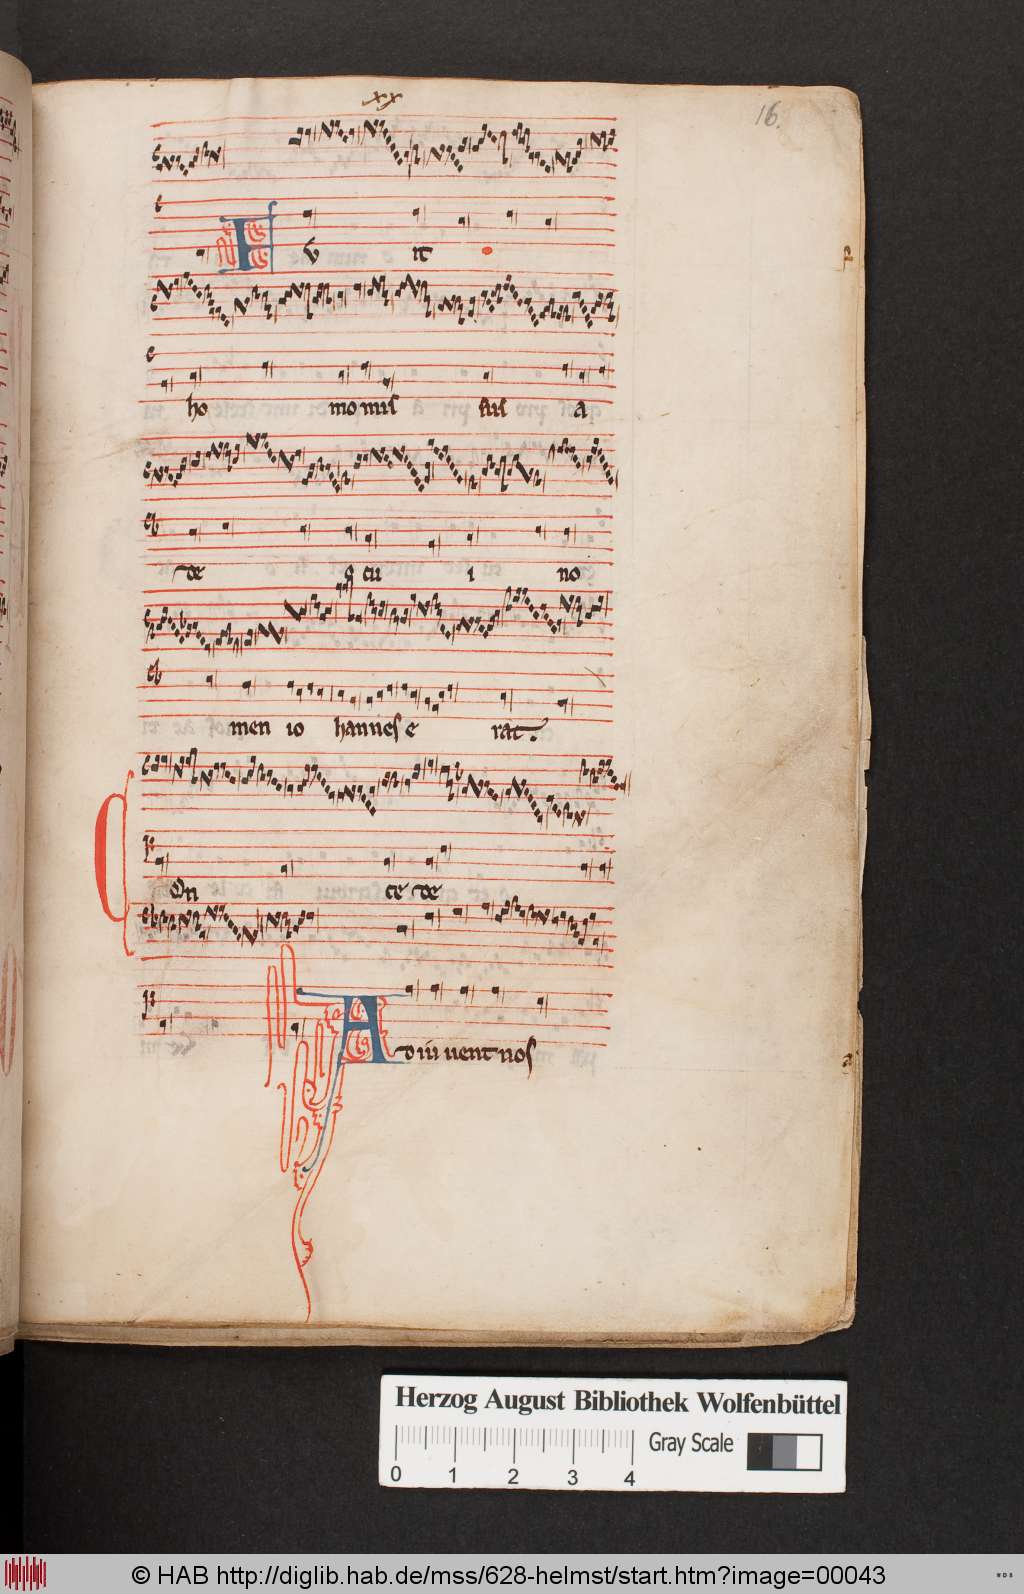 xx
16.
Fu it
ho mo mis sus a
de o cui i no
men io hannes e rat.
On ce de
A d iu uent nos
Herzog August Bibliothek Wolfenbüttel
Gray Scale
0 1 2 3 4
© HAB http://diglib.hab.de/mss/628-helmst/start.htm?image=00043